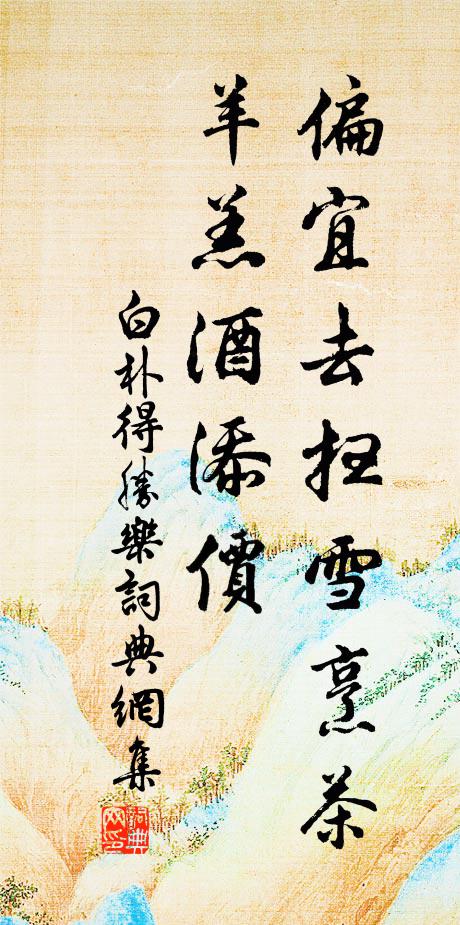 偏宜去扫雪烹茶
羊羔酒添價
白朴得勝樂詞典網集
詞典
网印